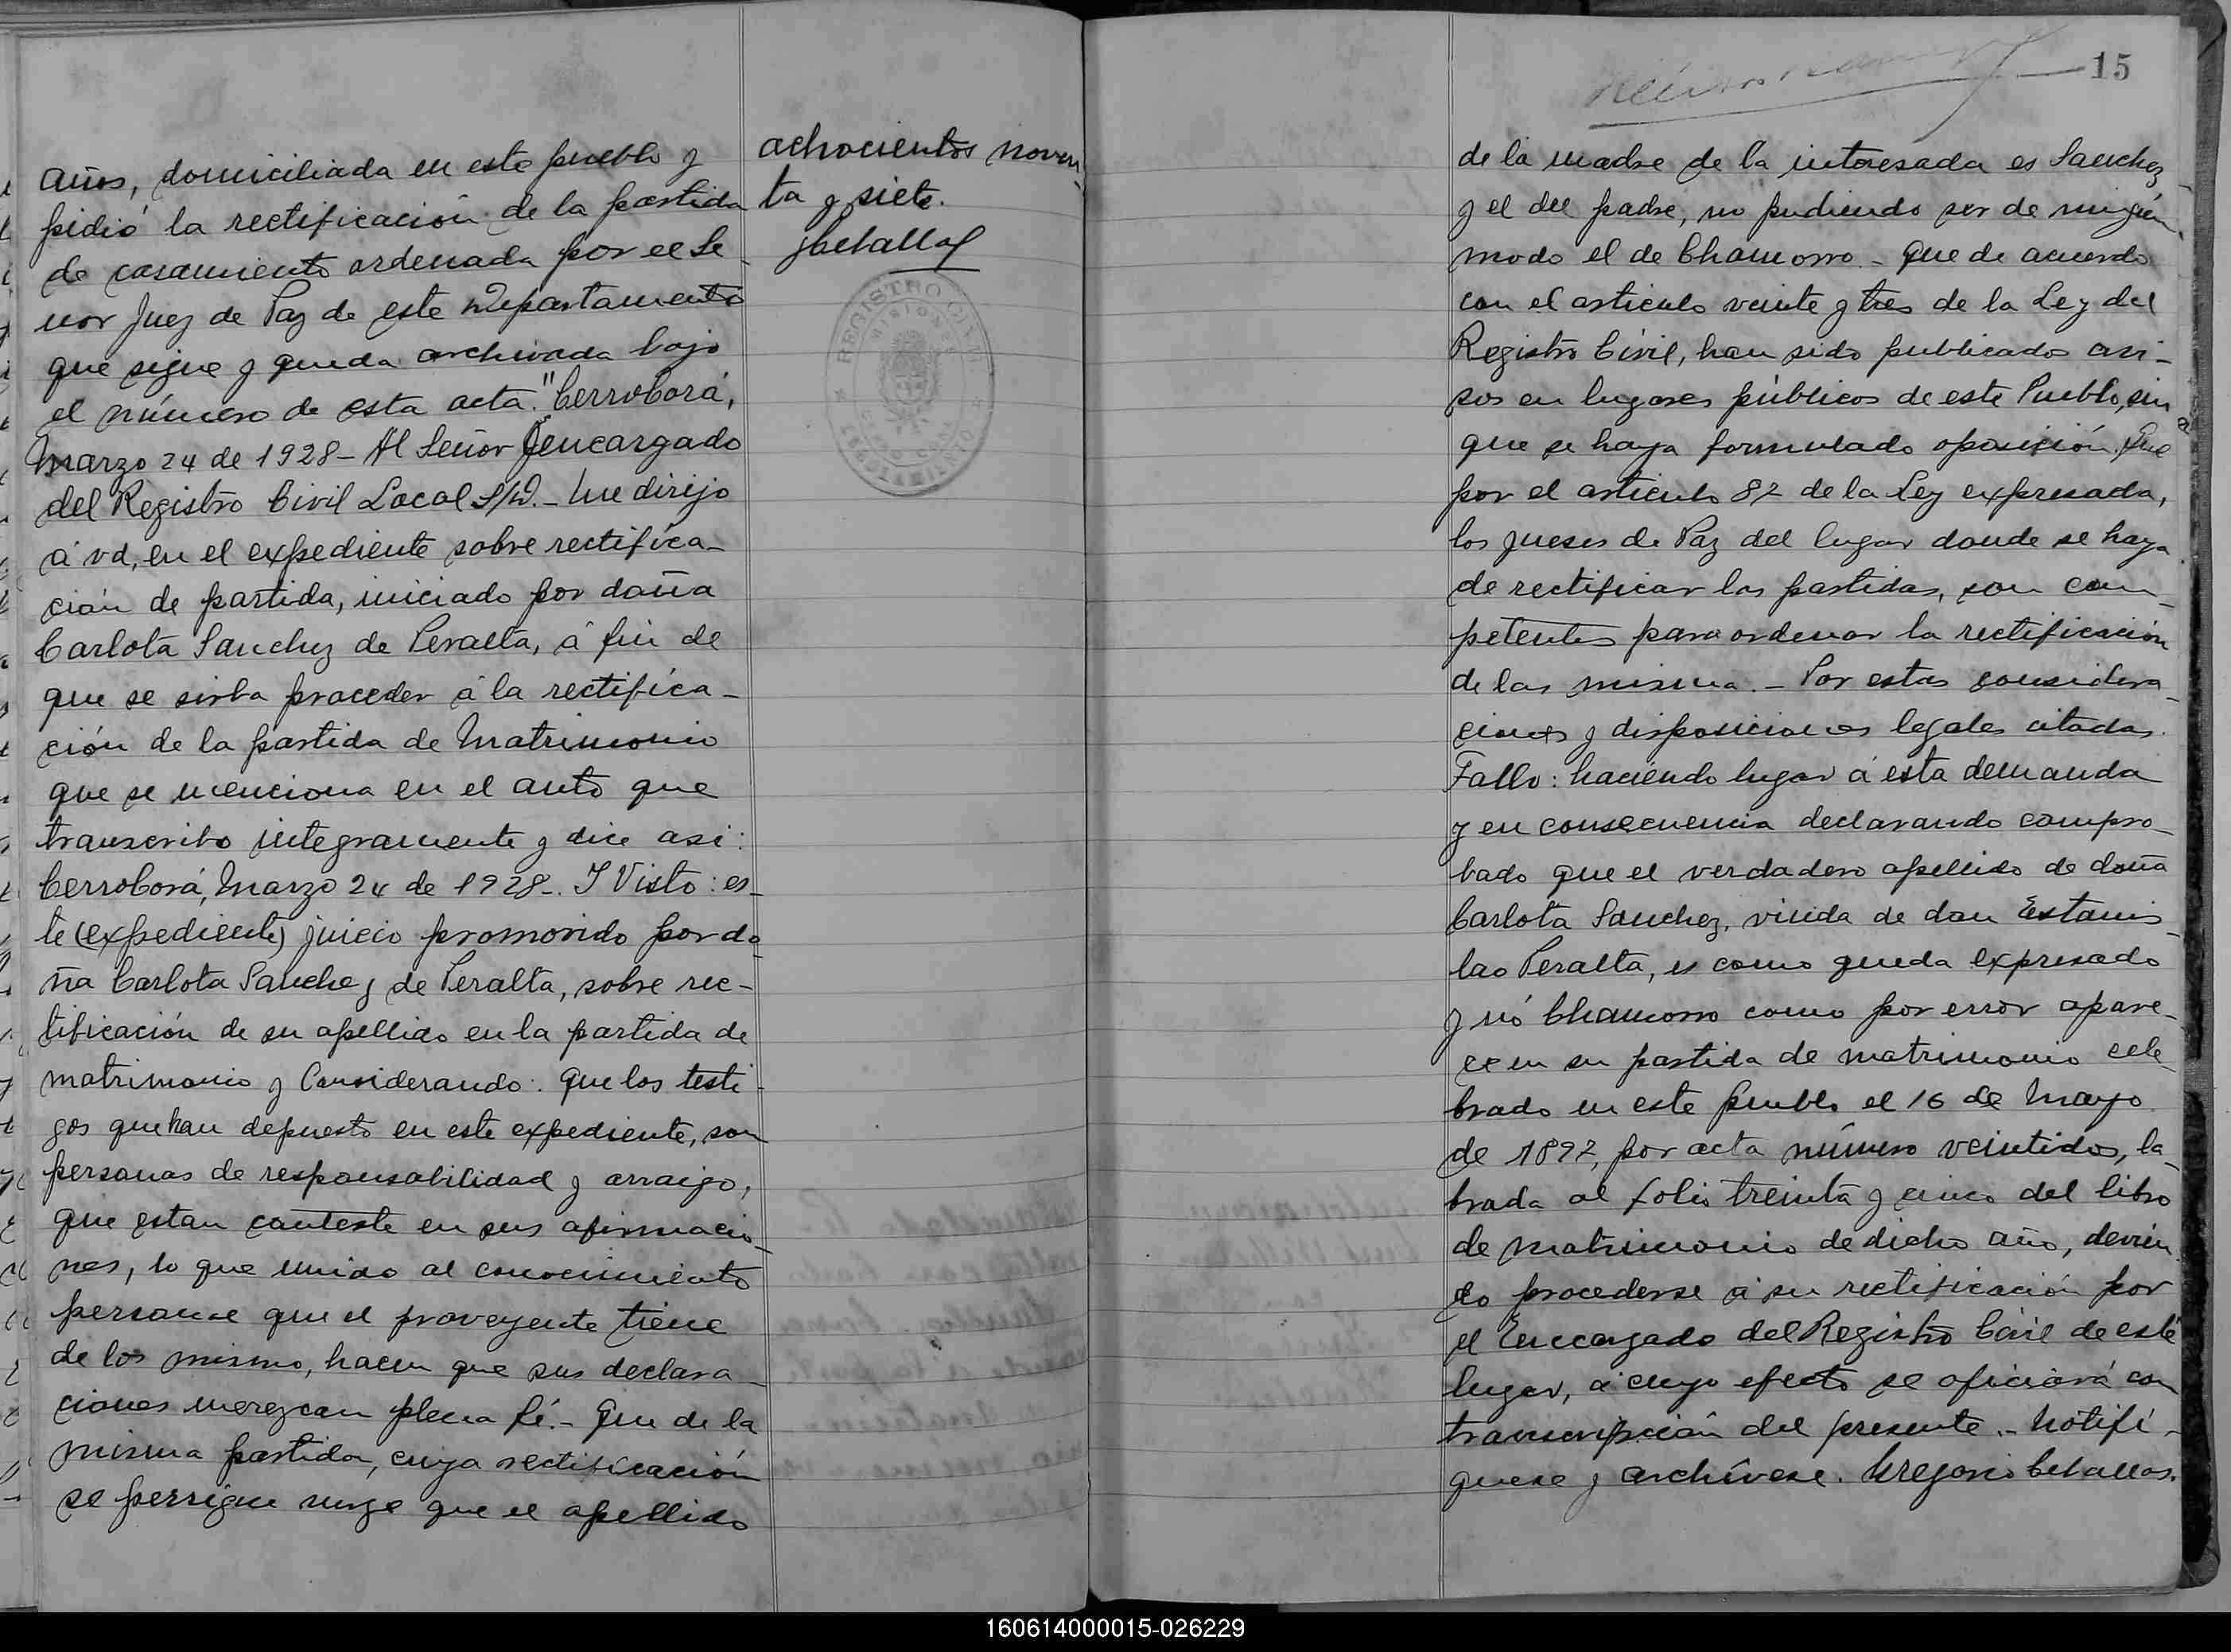 años, domiciliada en este pueblo y
pidió la rectificación de la partida
de casamiento ordenada por el Se
ñor Juez de Paz de este Departamento
que sigue y queda archivada bajo
el número de esta acta. "Cerrocorá,
Marzo 24 de 1928- Al Señor Jencargado
del Registro Civil Local S/D.- Me dirijo
á vd, en el expediente sobre rectifica-
ción de partida, iniciado por doña
Carlota Sanchez de Peralta, á fin de
que se sirba proceder á la rectifica-
ción de la partida de Matrimonio
que se menciona en el auto que
transcribo integramente y dice asi:
Cerrocorá, Marzo 24 de 1928-. Y Visto: es-
te (expediente) juicio promovido por do-
ña Carlota Sanchez de Peralta, sobre rec-
tificación de su apellido en la partida de
matrimonio y Considerando: Que los testi-
gos que han depuesto en este expediente, son
personas de responsabilidad y arraigo,
que estan conteste en sus afirmacio-
nes, lo que unido al conocimiento
personal que el proveyente tiene
de los mismo, hacen que sus declara-
ciones merezcan plena fé.- Que de la
misma partida, cuya rectificación
se persigue surge que el apellido
achocientos noven-
ta y siete.
REGISTRO CIVIL
MISIONES
15
de la madre de la interesada es Sanchez
y el del padre, no pudiendo ser de ningún
modo el de Chamorro.- Que de acuerdo
con el articulo veinte y tres de la Ley del
Registro Civil, han sido publicados avi-
sos en lugares públicos de este Pueblo, sin
que se haya formulado oposición. Que
por el articulo 82 de la Ley expresada,
los jueses de Paz del lugar donde se haya
de rectificar las partidas, son com-
petentes para ordenar la rectificación
de las misma.- Por estas considera-
ciones y disposiciones legales citadas.
Fallo: haciendo lugar á esta demanda
y en consecuencia declarando compro-
bado que el verdadero apellido de doña
Carlota Sanchez, viuda de don Estanis-
lao Peralta, es como queda expresado
y nó Chamorro como por error apare-
ce en su partida de matrimonio cele-
brado en este pueblo el 16 de Mayo
de 1897, por acta número veintidos, la-
brada al folio treinta y cinco del libro
de matrimonio de dicho año, devien-
do procederse á su rectificación por
el Encargado del Registro Civil de este
lugar, á cuyo efecto se oficiará con
transcripción del presente.- Notifi-
quese y archívese. Gregorio Ceballos.
160614000015-026229